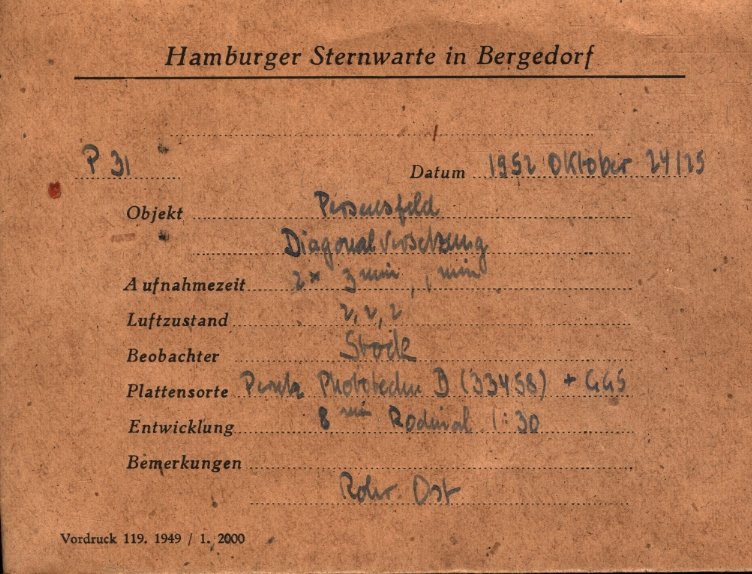 Hamburger Sternwarte in Bergedorf
P 31 Datum 1952 Oktober 24/25
Objekt Perseusfeld
Diagonalversetzung
Aufnahmezeit 2 × 3 min, 1 min
Luftzustand 2, 2, 2
Beobachter Stock
Plattensorte Perutz Phototechn B (33458) + GG5
Entwicklung 8 min Rodinal 1:30
Bemerkungen
Rohr. Ost
Vordruck 119. 1949 / 1. 2000